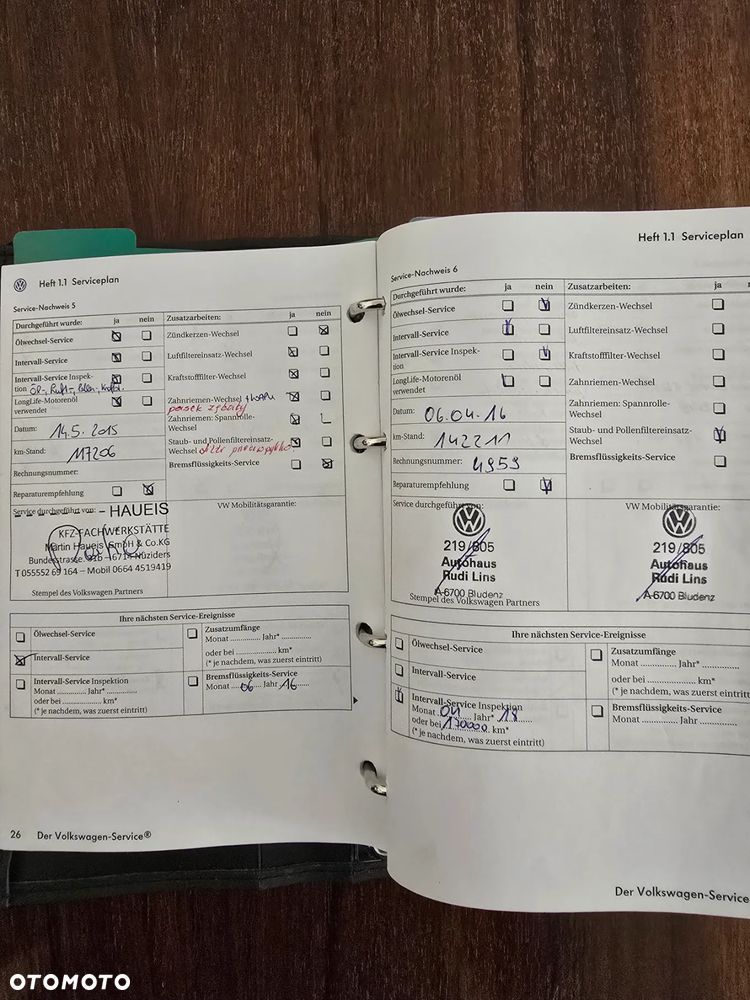 Heft 1.1 Serviceplan
Service-Nachweis 5
Durchgeführt wurde: ja nein Zusatzarbeiten: ja nein
Ölwechsel-Service
Zündkerzen-Wechsel
Intervall-Service
Luftfiltereinsatz-Wechsel
Intervall-Service Inspek-
tion
Kraftstofffilter-Wechsel
LongLife-Motorenöl
verwendet
Zahnriemen-Wechsel
pasek zębaty
Datum: 14.5.2015
Zahnriemen: Spannrolle-
Wechsel
km-Stand: 117206
Staub- und Pollenfiltereinsatz-
Wechsel
Rechnungsnummer:
Bremsflüssigkeits-Service
Reparaturempfehlung
Service durchgeführt von: - HAUEIS
VW Mobilitätsgarantie:
KFZ-FACHWERKSTÄTTE
Martin Haueis GmbH & Co.KG
Bundesstrasse Nüziders
T 055552 69 164 – Mobil 0664 4519419
Stempel des Volkswagen Partners
Ihre nächsten Service-Ereignisse
Ölwechsel-Service
Zusatzumfänge
Monat Jahr*
oder bei km*
(* je nachdem, was zuerst eintritt)
Intervall-Service
Intervall-Service Inspektion
Monat Jahr*
oder bei km*
(* je nachdem, was zuerst eintritt)
Bremsflüssigkeits-Service
Monat 06 Jahr 16
26 Der Volkswagen-Service®
Heft 1.1 Serviceplan
Service-Nachweis 6
Durchgeführt wurde: ja nein Zusatzarbeiten: ja
Ölwechsel-Service
Zündkerzen-Wechsel
Intervall-Service
Luftfiltereinsatz-Wechsel
Intervall-Service Inspek-
tion
Kraftstofffilter-Wechsel
LongLife-Motorenöl
verwendet
Zahnriemen-Wechsel
Datum: 06.04.16
Zahnriemen: Spannrolle-
Wechsel
km-Stand: 142211
Staub- und Pollenfiltereinsatz-
Wechsel
Rechnungsnummer: 4959
Bremsflüssigkeits-Service
Reparaturempfehlung
Service durchgeführt von:
VW Mobilitätsgarantie:
219/805
Autohaus
Rudi Lins
A-6700 Bludenz
Stempel des Volkswagen Partners
219/805
Autohaus
Rudi Lins
A-6700 Bludenz
Ihre nächsten Service-Ereignisse
Ölwechsel-Service
Zusatzumfänge
Monat Jahr*
oder bei km*
(* je nachdem, was zuerst eintritt)
Intervall-Service
Intervall-Service Inspektion
Monat 04 Jahr* 18
oder bei 170000 km*
(* je nachdem, was zuerst eintritt)
Bremsflüssigkeits-Service
Monat Jahr
Der Volkswagen-Service
OTOMOTO